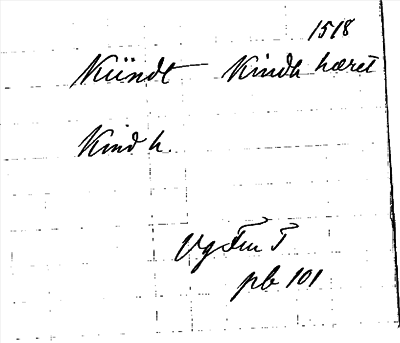 1518
Kündt Kindh hæret
Kind h.
Vg Fru T
pb 101